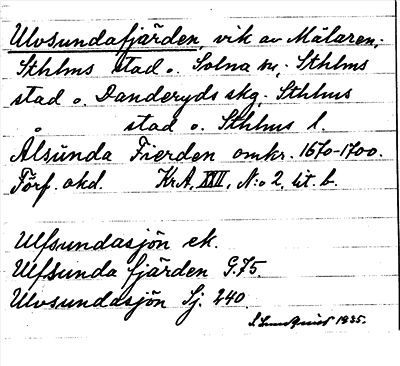 Ulvsundafjärden, vik av Mälaren;
Sthlms stad o. Solna sn; Sthlms
stad o. Danderyds skg; Sthlms
stad o. Sthlms l.
Ålsunda Fierden omkr. 1670-1700.
Förf. okd. KrA, XXII, N:o 2, lit. b.
Ulfsundasjön ek.
Ulfsunda fjärden G.75.
Ulvsundasjön Sj. 240
S. Lundquist 1935.